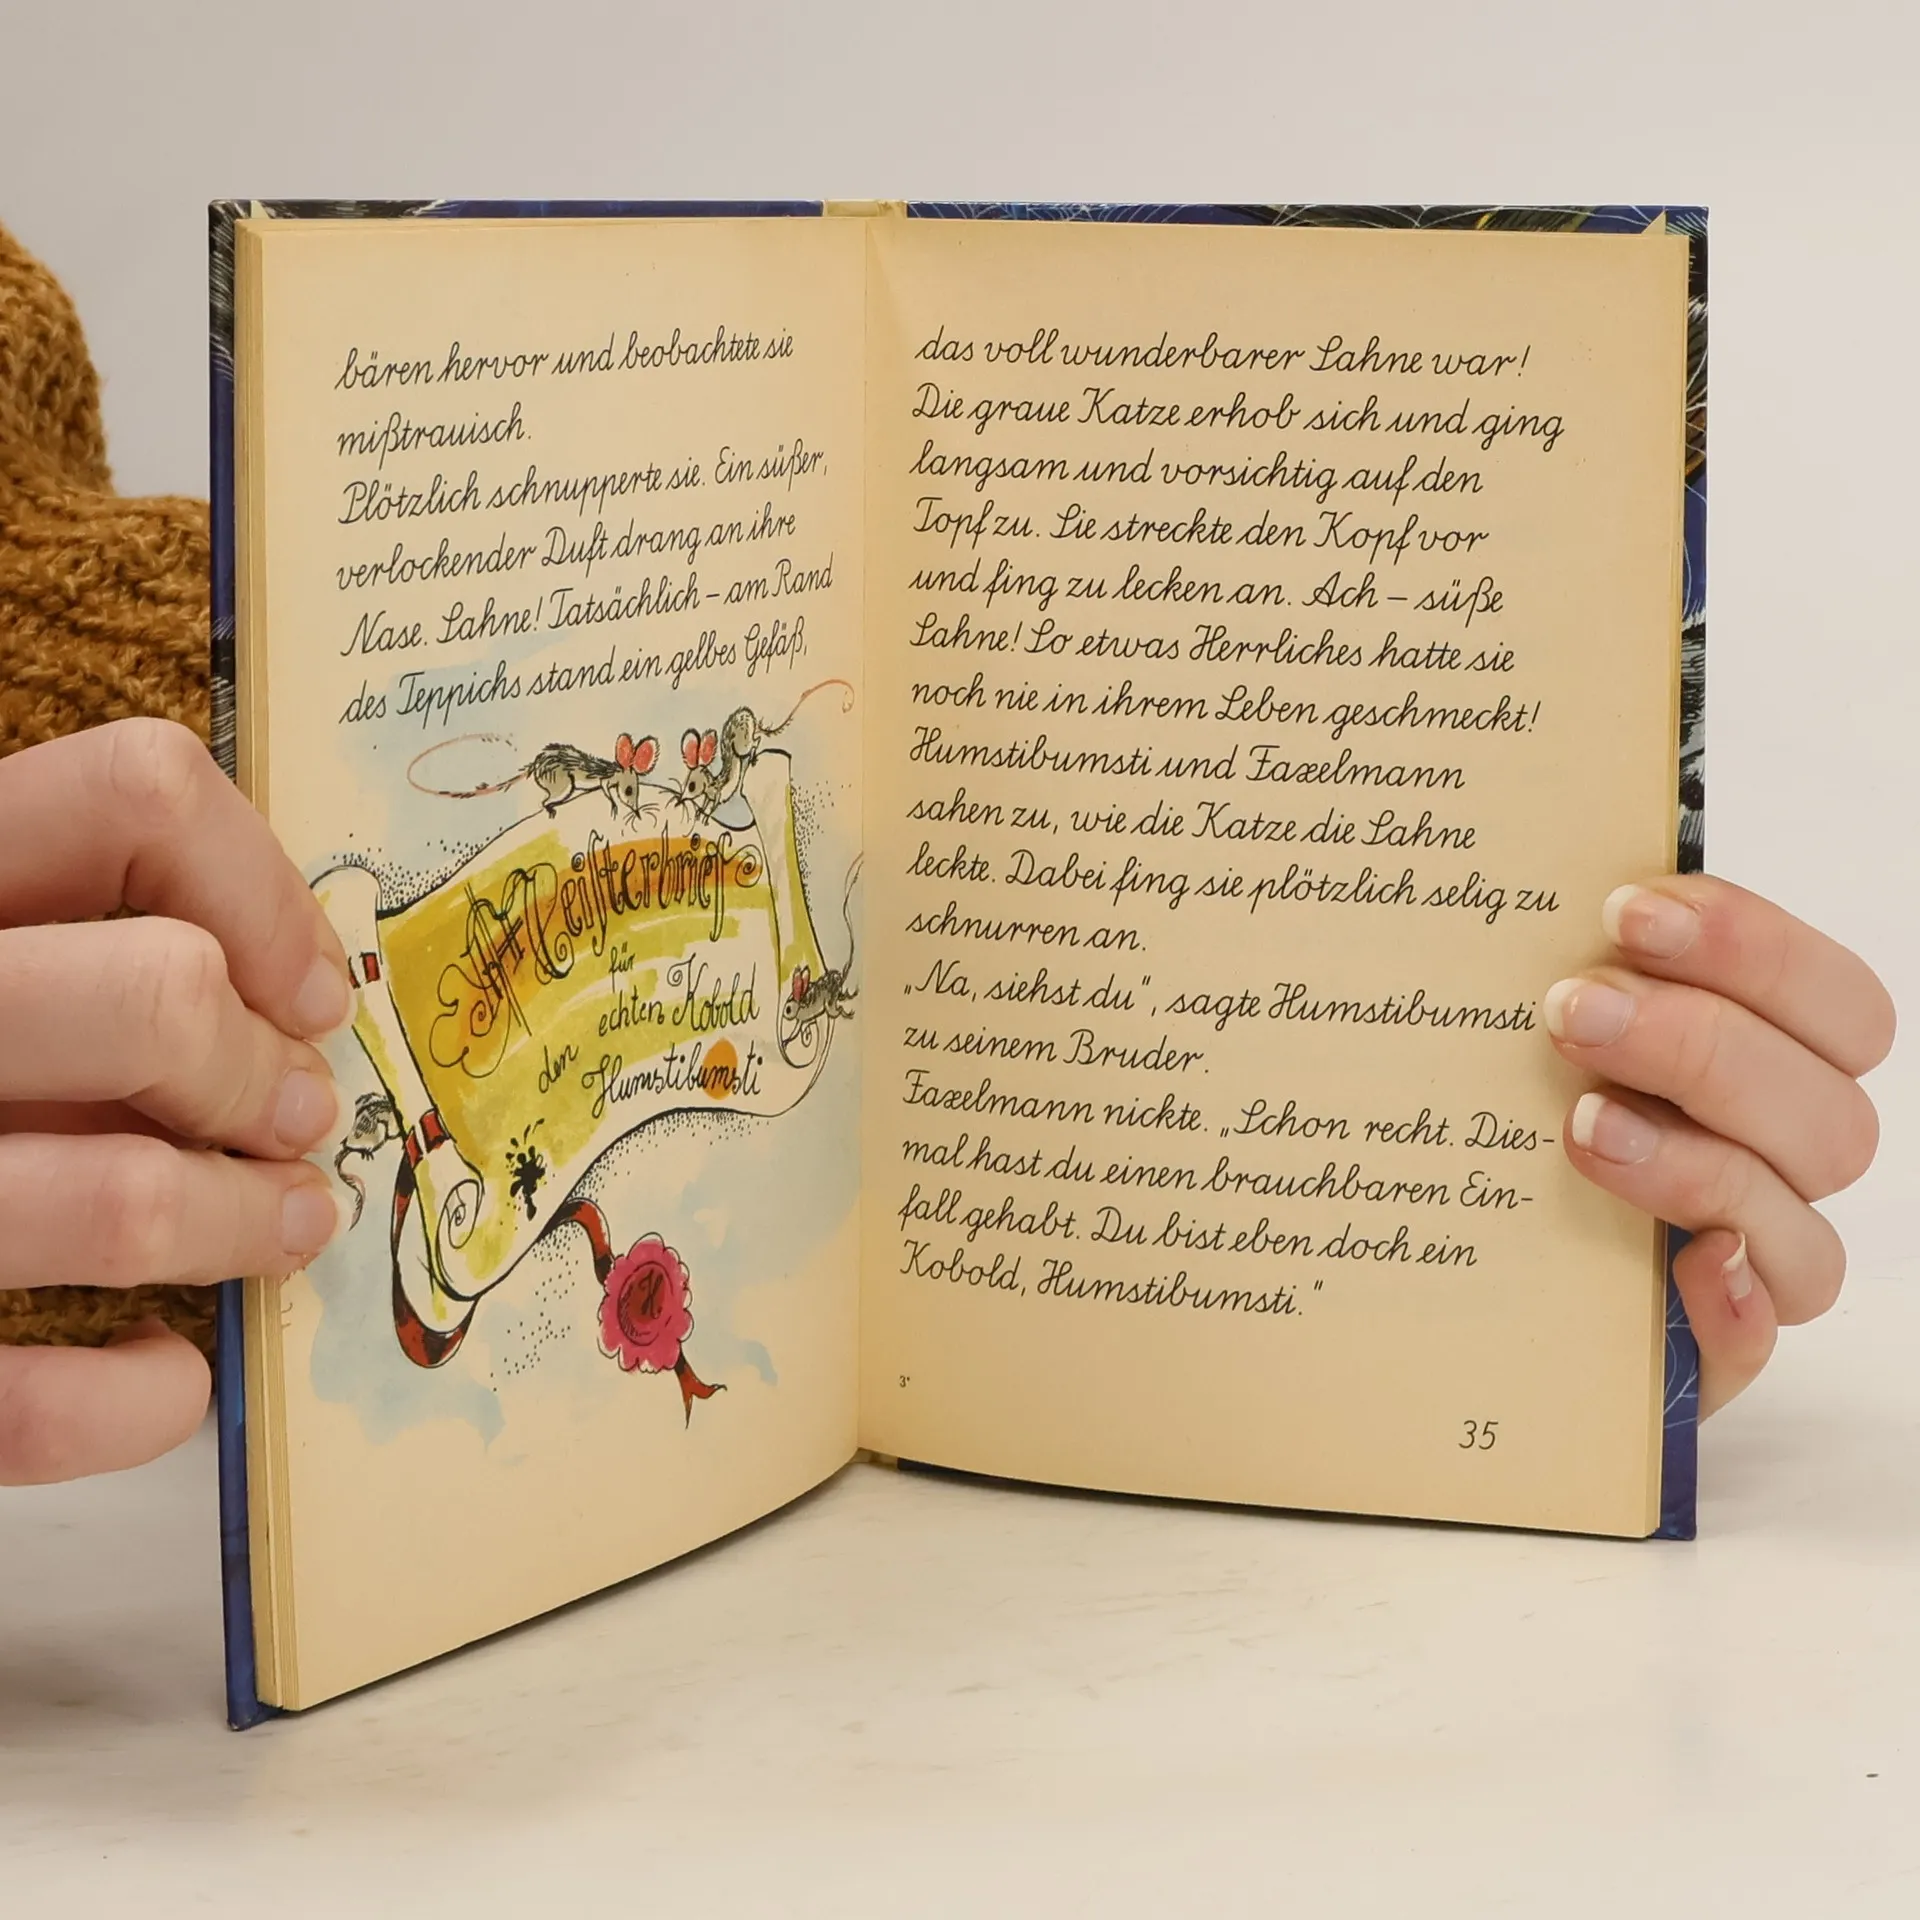 bären hervor und beobachtete sie
mißtrauisch.
Plötzlich schnupperte sie. Ein süßer,
verlockender Duft drang an ihre
Nase. Sahne! Tatsächlich – am Rand
des Teppichs stand ein gelbes Gefäß,
Meisterbrief
für
echten Kobold
den
Humstibumsti
H
das voll wunderbarer Sahne war!
Die graue Katze erhob sich und ging
langsam und vorsichtig auf den
Topf zu. Sie streckte den Kopf vor
und fing zu lecken an. Ach – süße
Sahne! So etwas Herrliches hatte sie
noch nie in ihrem Leben geschmeckt!
Humstibumsti und Faxelmann
sahen zu, wie die Katze die Sahne
leckte. Dabei fing sie plötzlich selig zu
schnurren an.
„Na, siehst du", sagte Humstibumsti
zu seinem Bruder.
Faxelmann nickte. „Schon recht. Dies-
mal hast du einen brauchbaren Ein-
fall gehabt. Du bist eben doch ein
Kobold, Humstibumsti."
3*
35